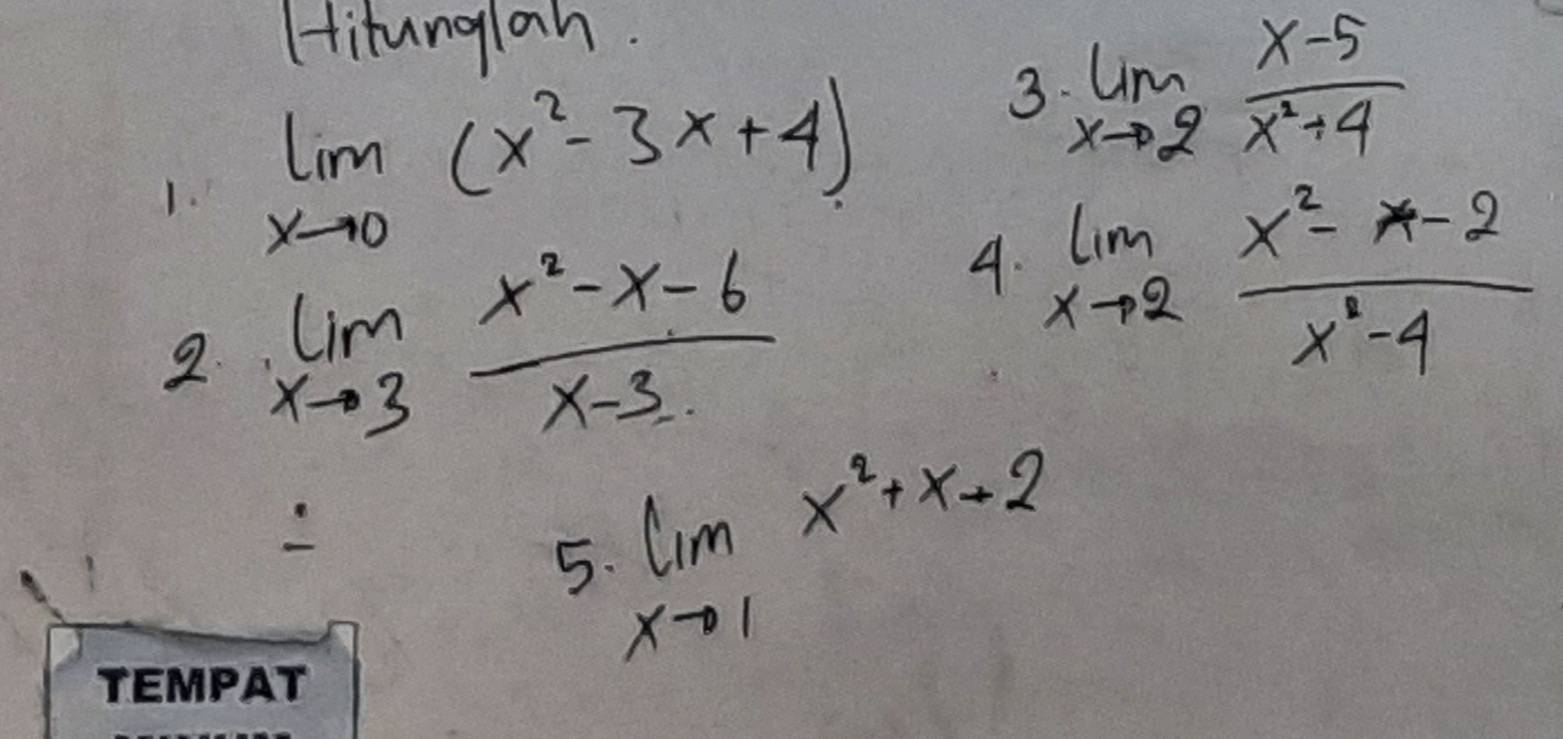 Hitunglah.
1. lim (x² - 3x + 4)
x→0
2. lim x² - x - 6
x→3 x - 3
3. lim x - 5
x→2 x² + 4
4. lim x² - x - 2
x→2 x² - 4
5. lim x² + x + 2
x→1
TEMPAT